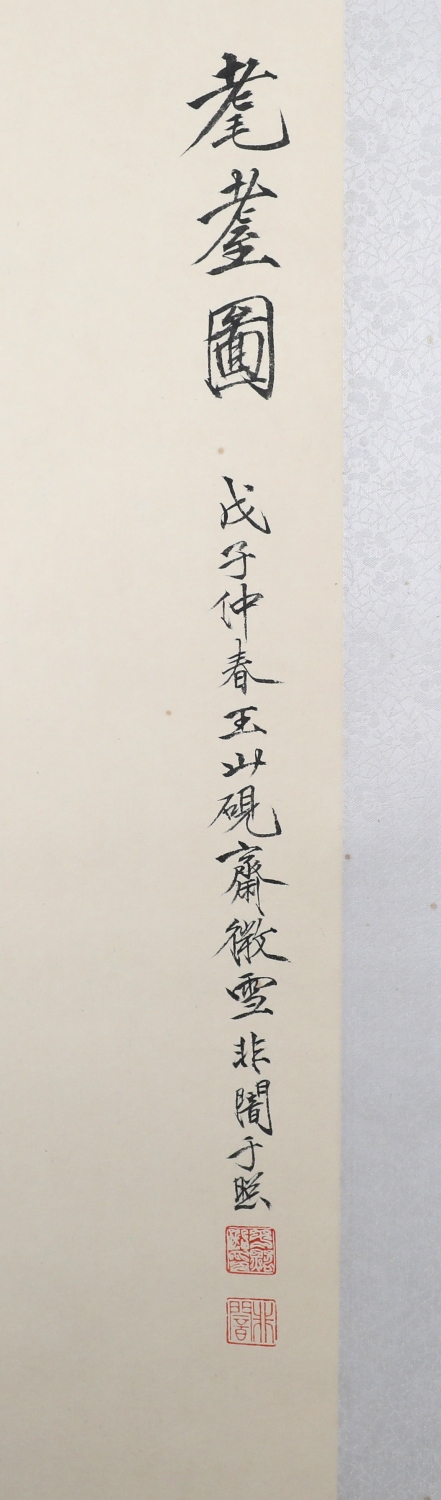 耄耋圖
戊子仲春玉山硯齋微雪非闇于照
非闇